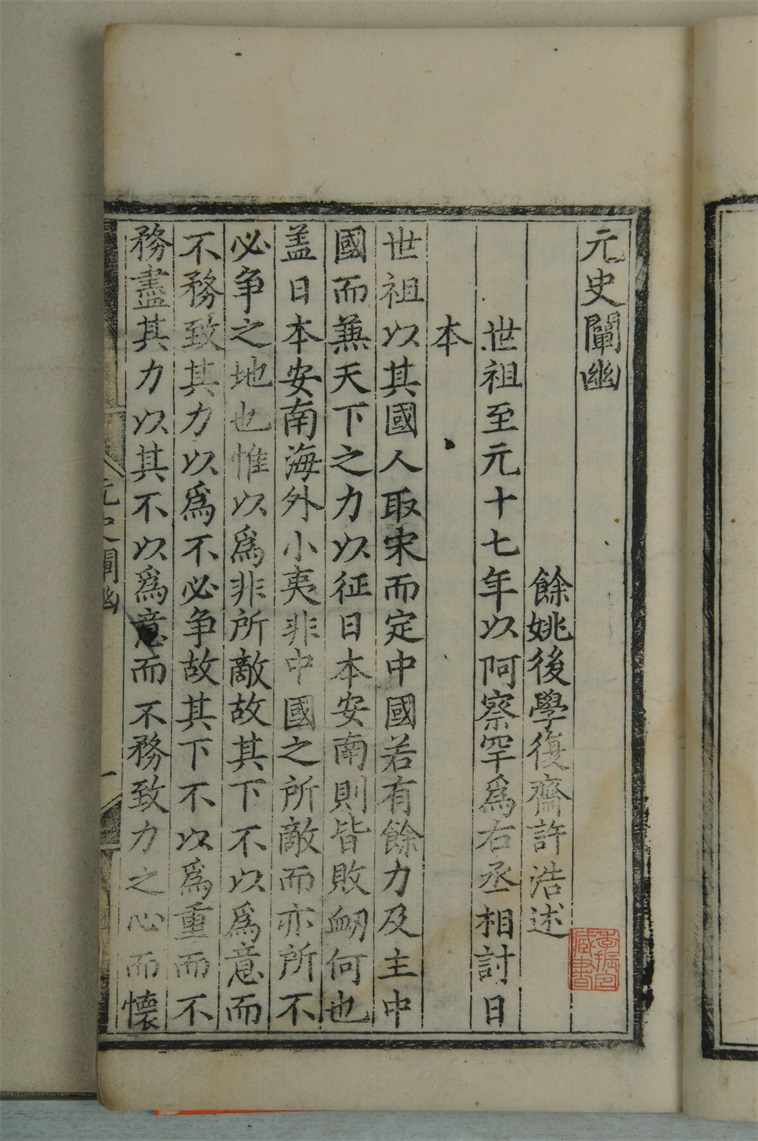 元史闡幽
餘姚後學復齋許浩述
世祖至元十七年以阿察罕為右丞相討日
本
世祖以其國人取宋而定中國若有餘力及主中
國而兼天下之力以征日本安南則皆敗衂何也
盖日本安南海外小夷非中國之所敵而亦所不
必争之地也惟以為非所敵故其下不以為意而
不務致其力以為不必争故其下不以為重而不
務盡其力以其不以為意而不務致力之心而懷
元史闡幽
一